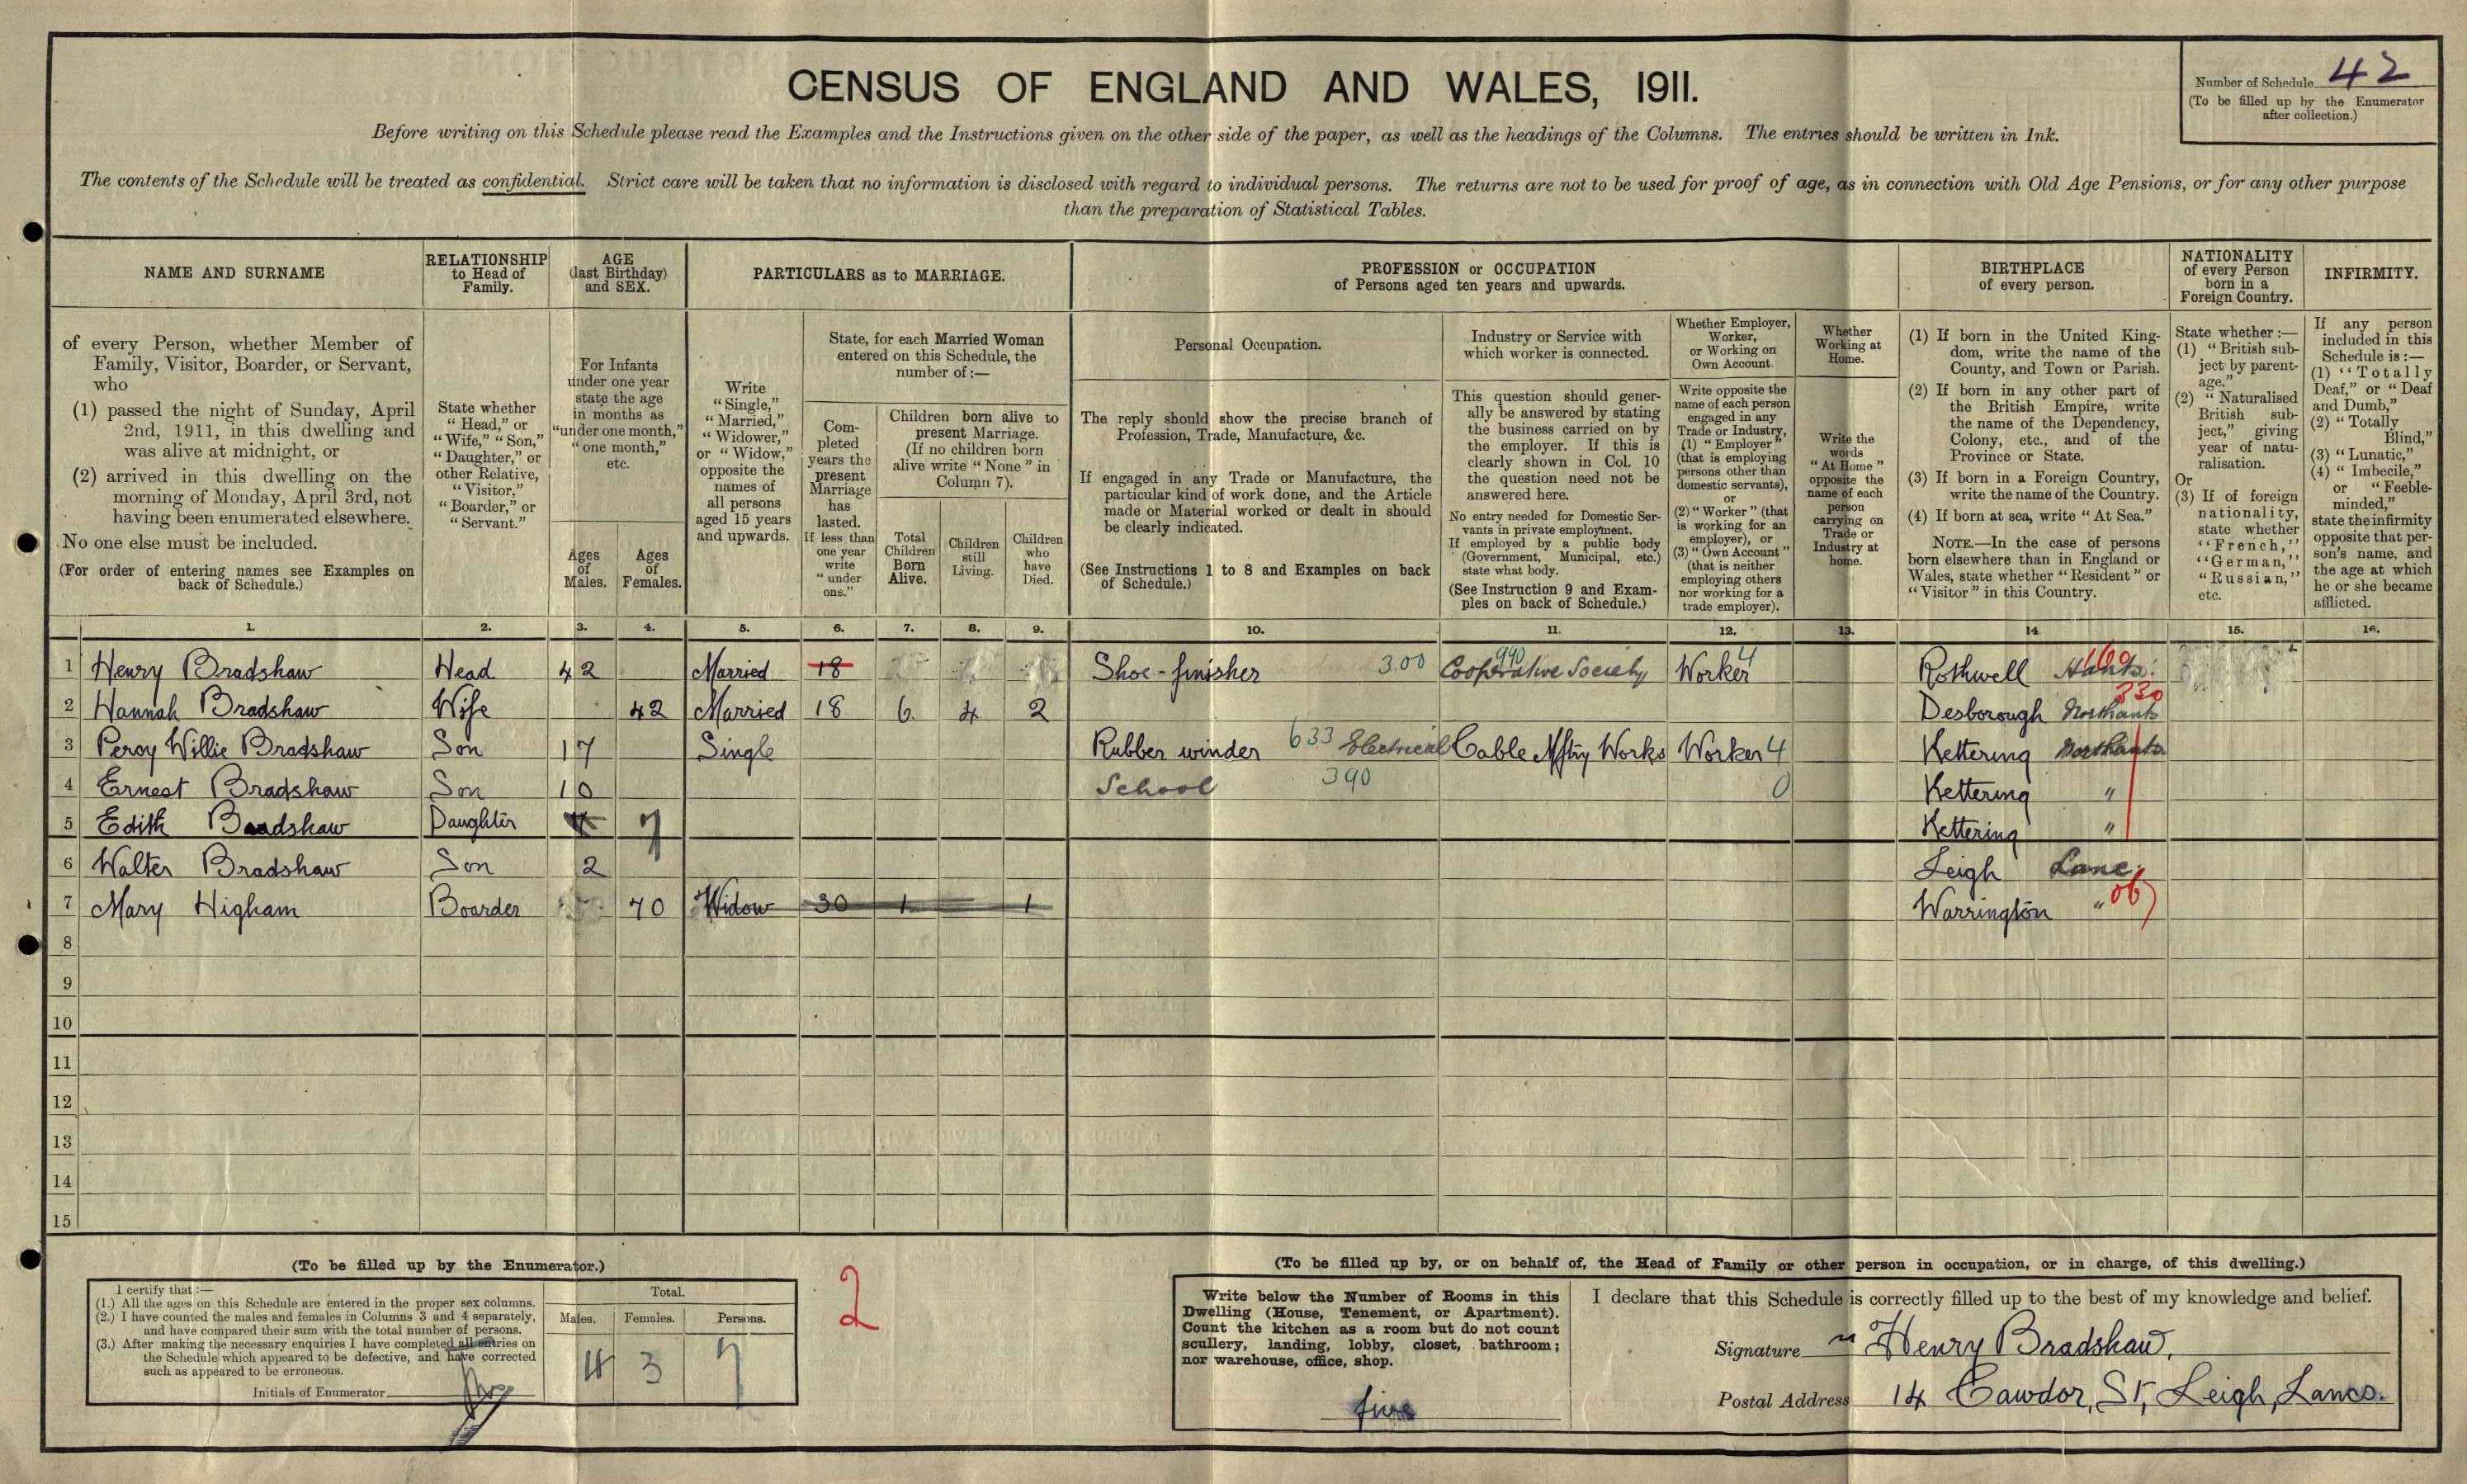 CENSUS OF ENGLAND AND WALES, 1911.
Number of Schedule 42
(To be filled up by the Enumerator
after collection.)
Before writing on this Schedule please read the Examples and the Instructions given on the other side of the paper, as well as the headings of the Columns. The entries should be written in Ink.
The contents of the Schedule will be treated as confidential. Strict care will be taken that no information is disclosed with regard to individual persons. The returns are not to be used for proof of age, as in connection with Old Age Pensions, or for any other purpose
than the preparation of Statistical Tables.
NAME AND SURNAME
RELATIONSHIP
to Head of
Family.
AGE
(last Birthday)
and SEX.
PARTICULARS as to MARRIAGE.
PROFESSION or OCCUPATION
of Persons aged ten years and upwards.
BIRTHPLACE
of every person.
NATIONALITY
of every Person
born in a
Foreign Country.
INFIRMITY.
of every Person, whether Member of
Family, Visitor, Boarder, or Servant,
who
(1) passed the night of Sunday, April
2nd, 1911, in this dwelling and
was alive at midnight, or
(2) arrived in this dwelling on the
morning of Monday, April 3rd, not
having been enumerated elsewhere.
No one else must be included.
(For order of entering names see Examples on
back of Schedule.)
State whether
"Head," or
"Wife," "Son,"
"Daughter," or
other Relative,
"Visitor,"
"Boarder," or
"Servant."
For Infants
under one year
state the age
in months as
"under one month,"
"one month,"
etc.
Ages
of
Males.
Ages
of
Females.
Write
"Single,"
"Married,"
"Widower,"
or "Widow,"
opposite the
names of
all persons
aged 15 years
and upwards.
State, for each Married Woman
entered on this Schedule, the
number of:—
Com-
pleted
years the
present
Marriage
has
lasted.
If less than
one year
write
"under
one."
Children born alive to
present Marriage.
(If no children born
alive write "None" in
Column 7).
Total
Children
Born
Alive.
Children
still
Living.
Children
who
have
Died.
Personal Occupation.
The reply should show the precise branch of
Profession, Trade, Manufacture, &c.
If engaged in any Trade or Manufacture, the
particular kind of work done, and the Article
made or Material worked or dealt in should
be clearly indicated.
(See Instructions 1 to 8 and Examples on back
of Schedule.)
Industry or Service with
which worker is connected.
This question should gener-
ally be answered by stating
the business carried on by
the employer. If this is
clearly shown in Col. 10
the question need not be
answered here.
No entry needed for Domestic Ser-
vants in private employment.
If employed by a public body
(Government, Municipal, etc.)
state what body.
(See Instruction 9 and Exam-
ples on back of Schedule.)
Whether Employer,
Worker,
or Working on
Own Account.
Write opposite the
name of each person
engaged in any
Trade or Industry,
(1) "Employer"
(that is employing
persons other than
domestic servants),
or
(2) "Worker" (that
is working for an
employer), or
(3) "Own Account"
(that is neither
employing others
nor working for a
trade employer).
Whether
Working at
Home.
Write the
words
"At Home"
opposite the
name of each
person
carrying on
Trade or
Industry at
home.
(1) If born in the United King-
dom, write the name of the
County, and Town or Parish.
(2) If born in any other part of
the British Empire, write
the name of the Dependency,
Colony, etc., and of the
Province or State.
(3) If born in a Foreign Country,
write the name of the Country.
(4) If born at sea, write "At Sea."
NOTE.—In the case of persons
born elsewhere than in England or
Wales, state whether "Resident" or
"Visitor" in this Country.
State whether:—
(1) "British sub-
ject by parent-
age."
(2) "Naturalised
British sub-
ject," giving
year of natu-
ralisation.
Or
(3) If of foreign
nationality,
state whether
"French,"
"German,"
"Russian,"
etc.
If any person
included in this
Schedule is:—
(1) "Totally
Deaf," or "Deaf
and Dumb,"
(2) "Totally
Blind,"
(3) "Lunatic,"
(4) "Imbecile,"
or "Feeble-
minded,"
state the infirmity
opposite that per-
son's name, and
the age at which
he or she became
afflicted.
1. 2. 3. 4. 5. 6. 7. 8. 9. 10. 11. 12. 13. 14 15. 16.
1 Henry Bradshaw Head 42 Married 18 Shoe-finisher 300 Cooperative Society 990 Worker 4 Rothwell 160
2 Hannah Bradshaw Wife 42 Married 18 6 4 2 Desborough Northants 330
3 Percy Willie Bradshaw Son 17 Single Rubber winder 633 Electrical Cable Mftry Works Worker 4 Kettering Northants
4 Ernest Bradshaw Son 10 School 390 0 Kettering "
5 Edith Bradshaw Daughter 7 Kettering "
6 Walter Bradshaw Son 2 Leigh Lanc.
7 Mary Higham Boarder 70 Widow 30 1 1 Warrington "
8
9
10
11
12
13
14
15
(To be filled up by the Enumerator.)
I certify that:—
(1.) All the ages on this Schedule are entered in the proper sex columns.
(2.) I have counted the males and females in Columns 3 and 4 separately,
and have compared their sum with the total number of persons.
(3.) After making the necessary enquiries I have completed all entries on
the Schedule which appeared to be defective, and have corrected
such as appeared to be erroneous.
Initials of Enumerator
Total.
Males. Females. Persons.
4 3 7
2
(To be filled up by, or on behalf of, the Head of Family or other person in occupation, or in charge, of this dwelling.)
Write below the Number of Rooms in this
Dwelling (House, Tenement, or Apartment).
Count the kitchen as a room but do not count
scullery, landing, lobby, closet, bathroom;
nor warehouse, office, shop.
five
I declare that this Schedule is correctly filled up to the best of my knowledge and belief.
Signature Henry Bradshaw,
Postal Address 14 Cawdor, St, Leigh, Lancs.